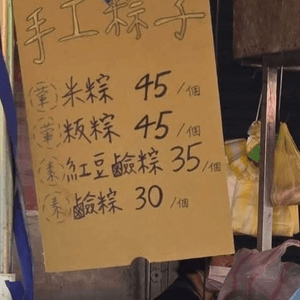 手工粽子
(葷)米粽 45/個
(葷)粄粽 45/個
(素)紅豆鹼粽 35/個
(素)鹼粽 30/個